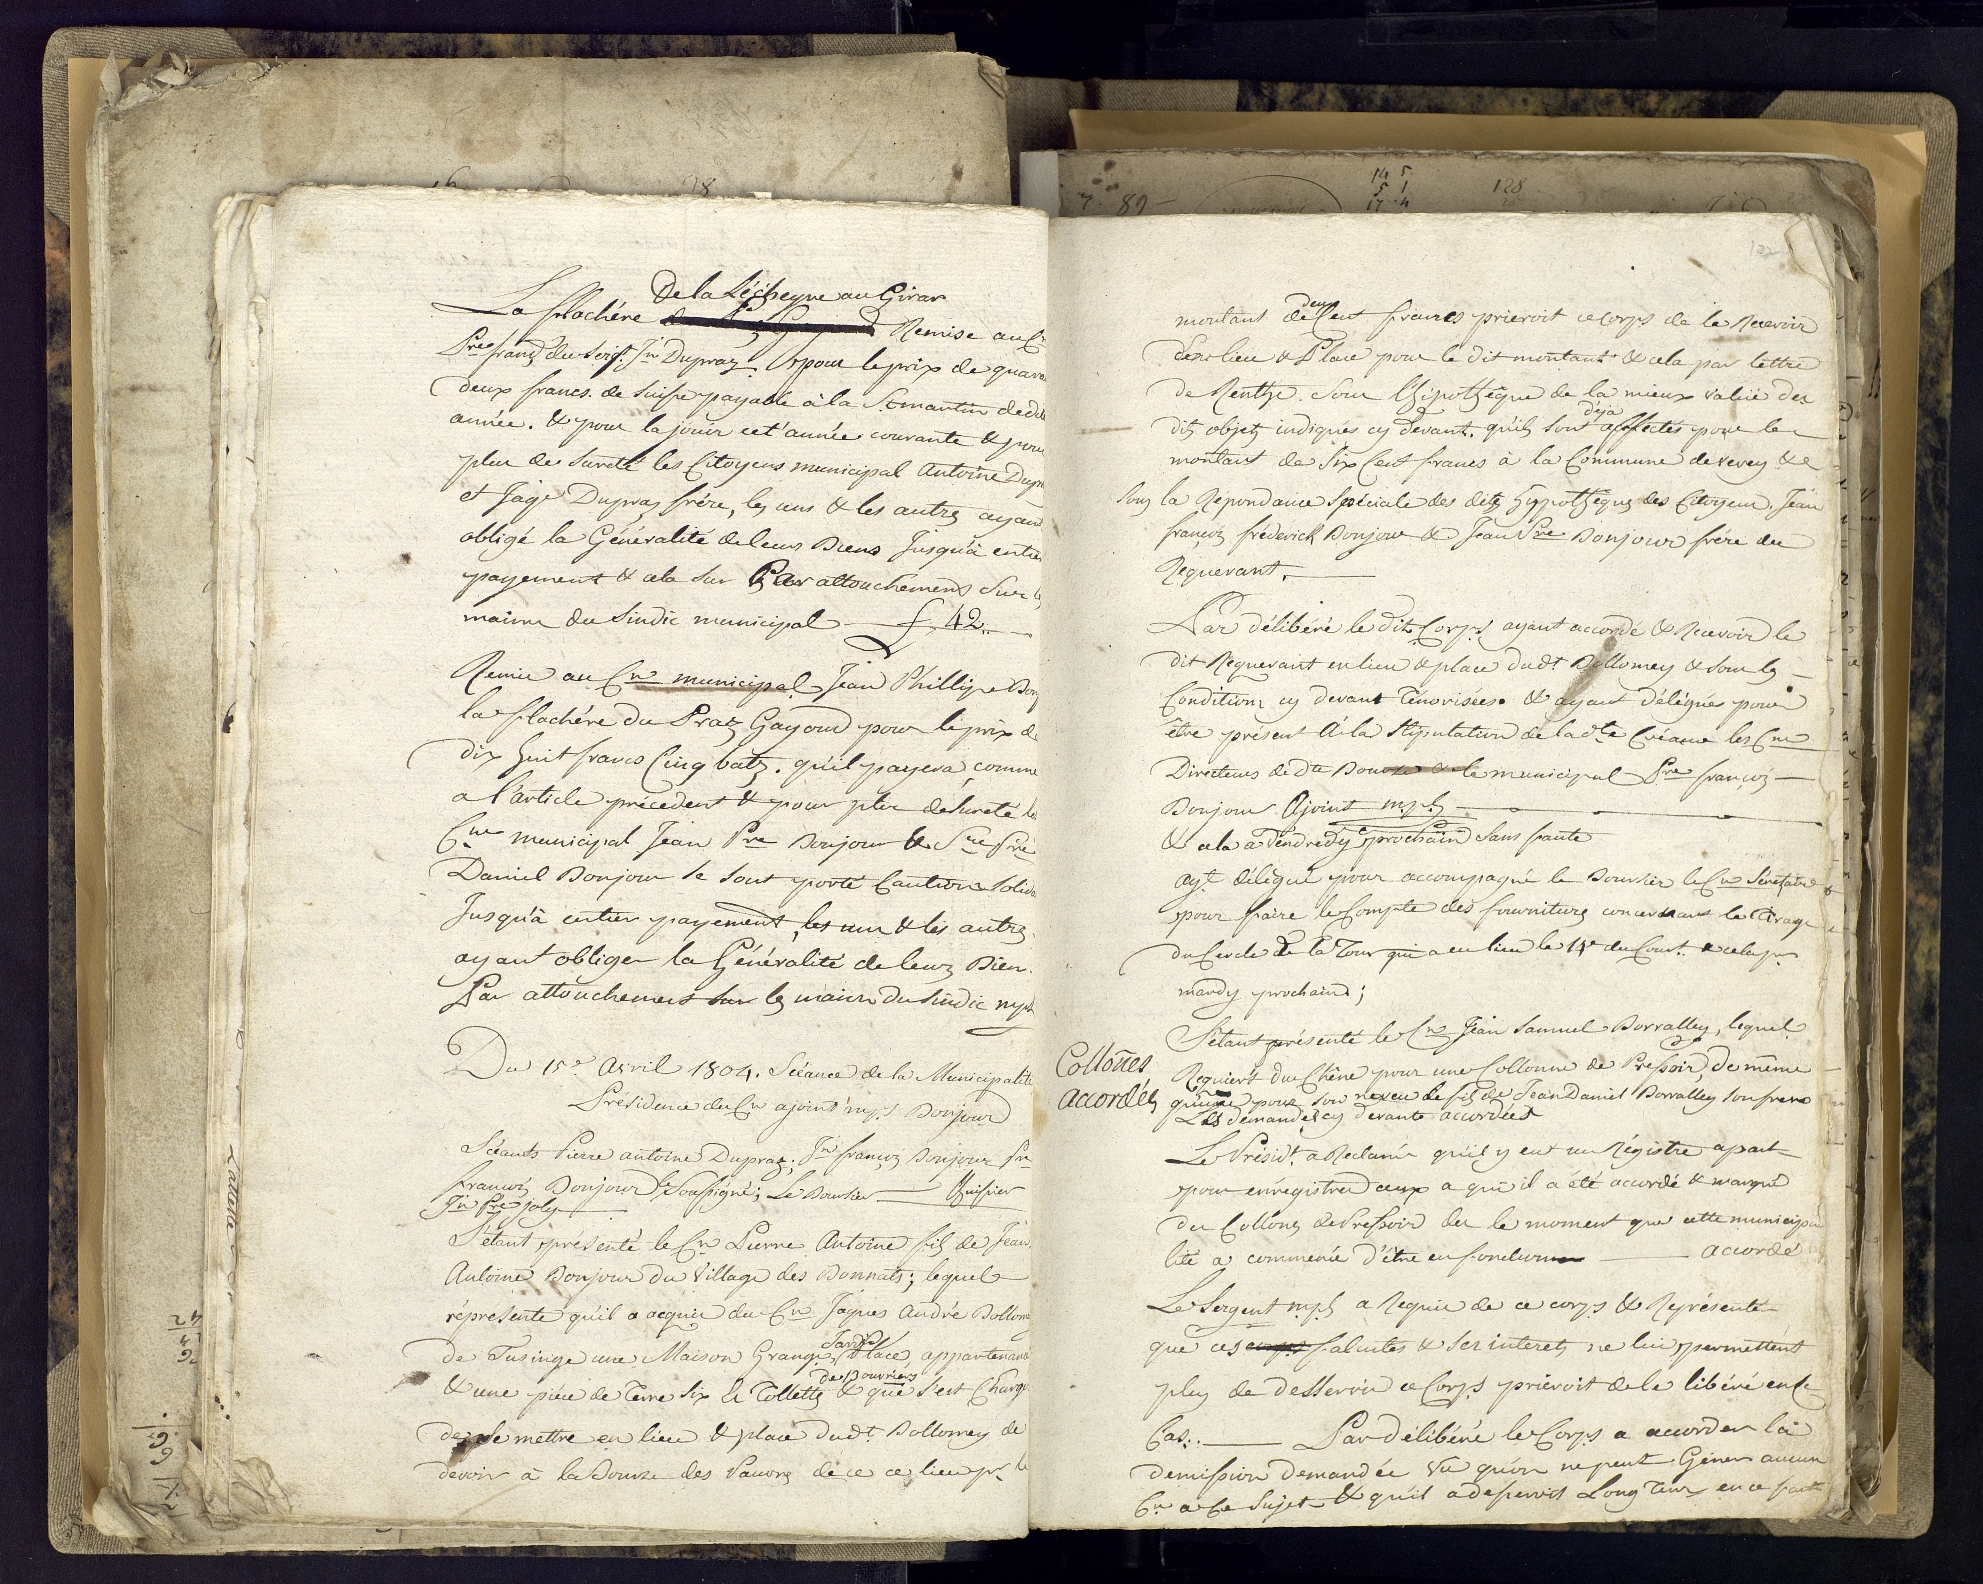 De la Lécheyre au Girar
La flachére Remise au Cn
Pre franç du Seigt. Jn Dupraz. & pour le prix de quara
deux francs. de Suisse payable à la St. martin de dite
année. & pour la jouir cet' année courante & pour
plus de Sureté les Citoyens municipal Antoine Dup
et Jaqe Dupraz frére, les uns & les autres ayant
obligé la Généralité de leurs Biens Jusqu'à entier
payement & cela sur Par attouchemens Sur les
mains du Sindic municipal — £ 42..
Remise au Cn municipal Jean Phillipe Bonj
la flachére du Pratz Gayoud pour le prix de
dix huit francs Cinq batz. qu'il payera, comme
a l'article précedent & pour plus de Sureté les
Cns municipal Jean Pre Bonjour & Pre
Daniel Bonjour se sont porté Cautions Solida
Jusqu'à entier payement, les uns & les autres
ayant obliger la Généralité de leurs Bien.
Par attouchement sur les mains du Sindic mpl
Du 15e. Avril 1804. Séance de la Municipalité
Présidence du Cn ajoint mpl Bonjour
Séants Pierre antoine Dupraz; Jn françs Bonjour Pre
françois Bonjour le Soussigné; Le Boursier — Huissier
Jn Pre joly
S'étant présenté le Cn Pierre Antoine fils de Jean
Antoine Bonjour du Village des Bonnats; lequel
réprésente qu'il a acquis du Cn Jaques André Dollom
Jardin
de Tusinge une Maison Grange, Place, appartenan
de Bouviers
& une piéce de Terre Six à Tollettes & que S'est Charge
de se mettre en lieu & place dudt. Dollomey de
devoir à la Bourse des Pauvres de ce ce lieu pr le
montant de deux Cent francs prieroit ce Corps de le Recevoir
d'en lieu & Place pour le dit montant & cela par lettre
de Renthe. Sous l'hipothéque de la mieux valüe des
dits objets indiqués cy devant. qu'ils sont déja affectés pour le
montant de Six Cent francs à la Commune de vevey &
Sous la Répondance Spéciale des dits Hyppothéques des Citoyens. Jean
françois fréderich Bonjour & Jean Pre Bonjour frére du
Réquerant.
Par délibéré le dit Corps ayant accordé & Recevoir le
dit Réquerant en lieu & place dudt Dollomey & sous les
Conditions cy devant Ténorisées. & ayant délégués pour
être présent A la Stipulation de la dte Créance les Cns
Directeurs de dte Bourse & le municipal Pre françois
Bonjour Ajoint mpl
& cela à Vendredy prochain Sans faute
ayt délégué pour accompagné le Boursier le Cn Sécrétaire
pour faire le Compte des fournitures concernans le Tirage
du Cercle de la Tour qui a eu lieu le 14e du Court. & cela pr
mardy prochain;
S'étant présenté le Cn Jean Samuel Borralley, lequel
Collones
accordées
Réquiert du Chêne pour une Collonne de Pressoir, de même
qu'une pour son neveu le fils de Jean Daniel Borralley son frere
Les demandes cy devants accordées
Le Présidt. a Réclamé qu'il y eut un Régistre apart
pour enrégistrer ceux a qui il a été accordé & marqué
des Collones de Pressoir des le moment que cette municipa
lité a commencé d'être en fonction — accordé
Le Sergent mpl a Requis de ce corps & Réprésenté
que ces facultés & Ses interets ne lui permettent
plus de desservir ce Corps prieroit de le libéré en ce
Cas.. — Par délibéré le Corps a accorder la
demission demandée Vu qu'on ne peut Géner aucun
Cn a ce Sujet & qu'il a desservit Long Tems en ce fait